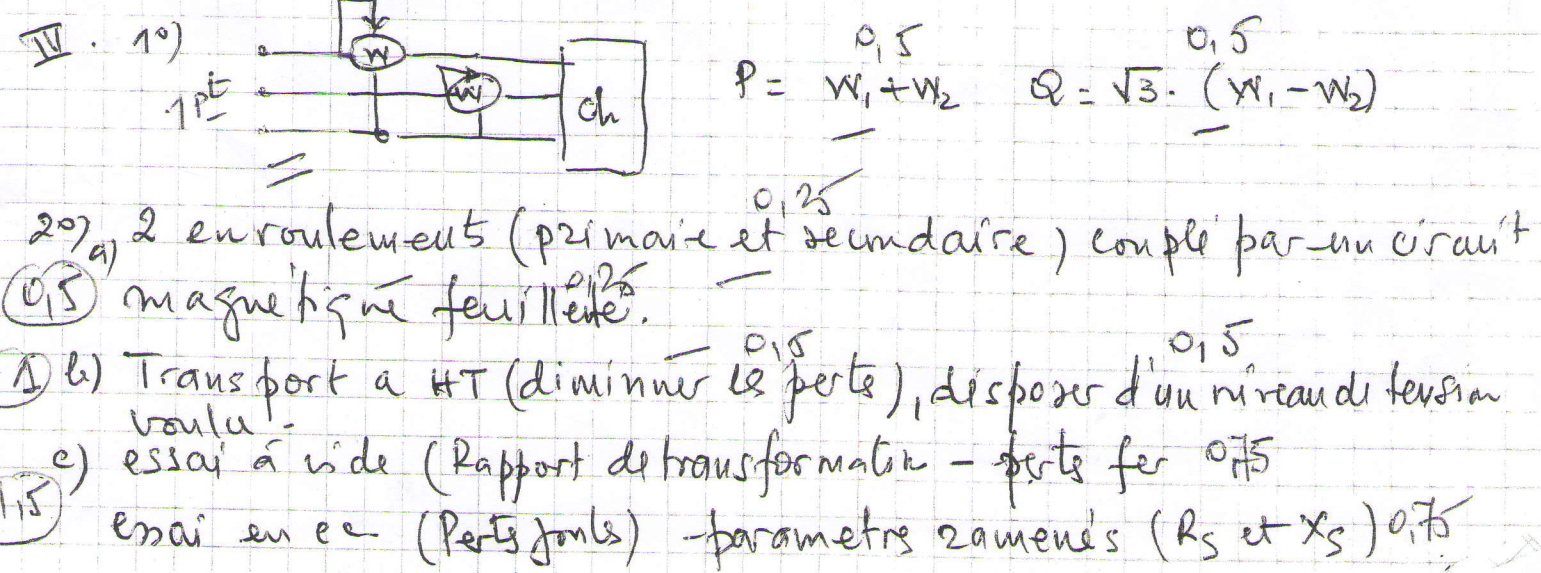 IV. 1°)
W
W
ch
1 pt
0,5 0,5
P = W₁ + W₂ Q = √3. (W₁ - W₂)
0,25
2°) a) 2 enroulements (primaire et secondaire) couplé par un circuit
0,5 magnétique feuilleté. 0,25
0,5 0,5
1 b) Transport a HT (diminuer les pertes), disposer d'un niveau de tension
voulu.
c) essai à vide (Rapport de transformation - perts fer 0,75
1,5 essai en cc (Perts Joule) - parametres ramenés (Rs et Xs) 0,75